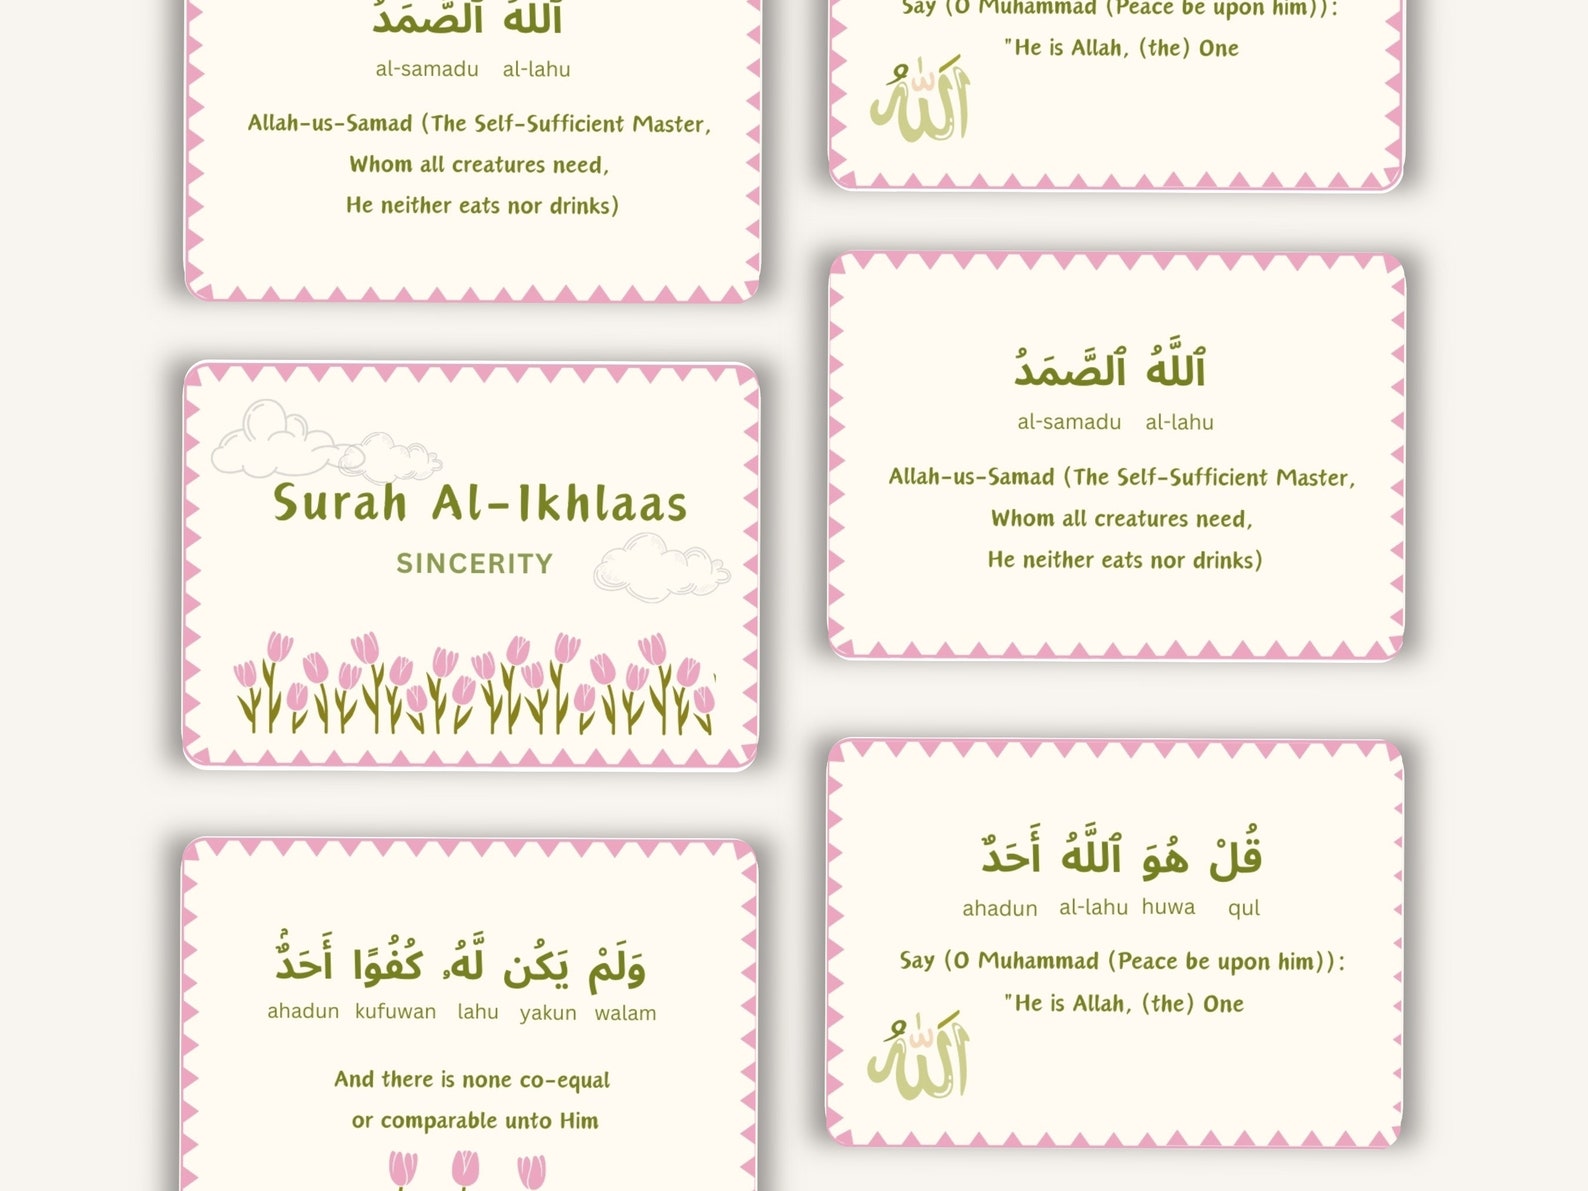 ٱللَّهُ ٱلصَّمَدُ
al-samadu al-lahu
Allah-us-Samad (The Self-Sufficient Master,
Whom all creatures need,
He neither eats nor drinks)
Surah Al-Ikhlaas
SINCERITY
وَلَمْ يَكُن لَّهُۥ كُفُوًا أَحَدٌۢ
ahadun kufuwan lahu yakun walam
And there is none co-equal
or comparable unto Him
Say (O Muhammad (Peace be upon him)):
"He is Allah, (the) One
الله
ٱللَّهُ ٱلصَّمَدُ
al-samadu al-lahu
Allah-us-Samad (The Self-Sufficient Master,
Whom all creatures need,
He neither eats nor drinks)
قُلْ هُوَ ٱللَّهُ أَحَدٌ
ahadun al-lahu huwa qul
Say (O Muhammad (Peace be upon him)):
"He is Allah, (the) One
الله